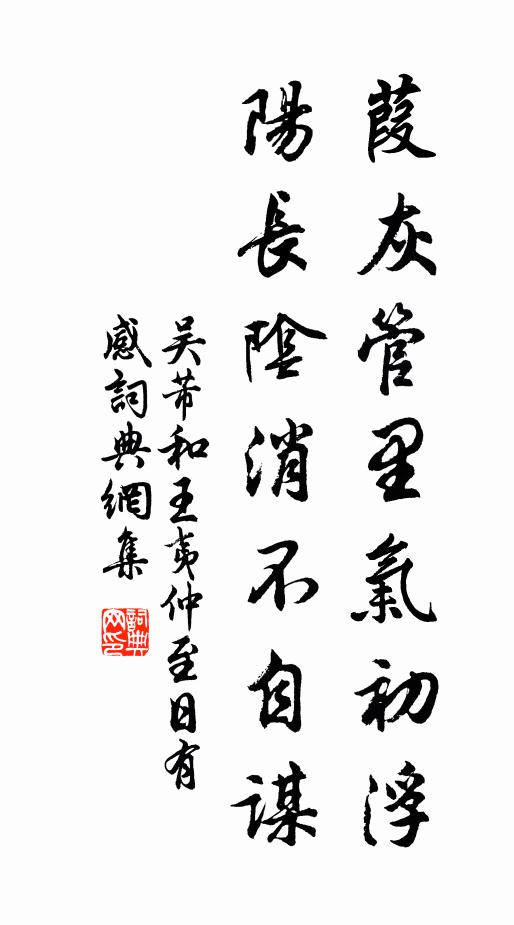 葭灰管里氣初浮
陽長陰消不自謀
吴芾和王夷仲至日有
感詞典網集
詞典
网印